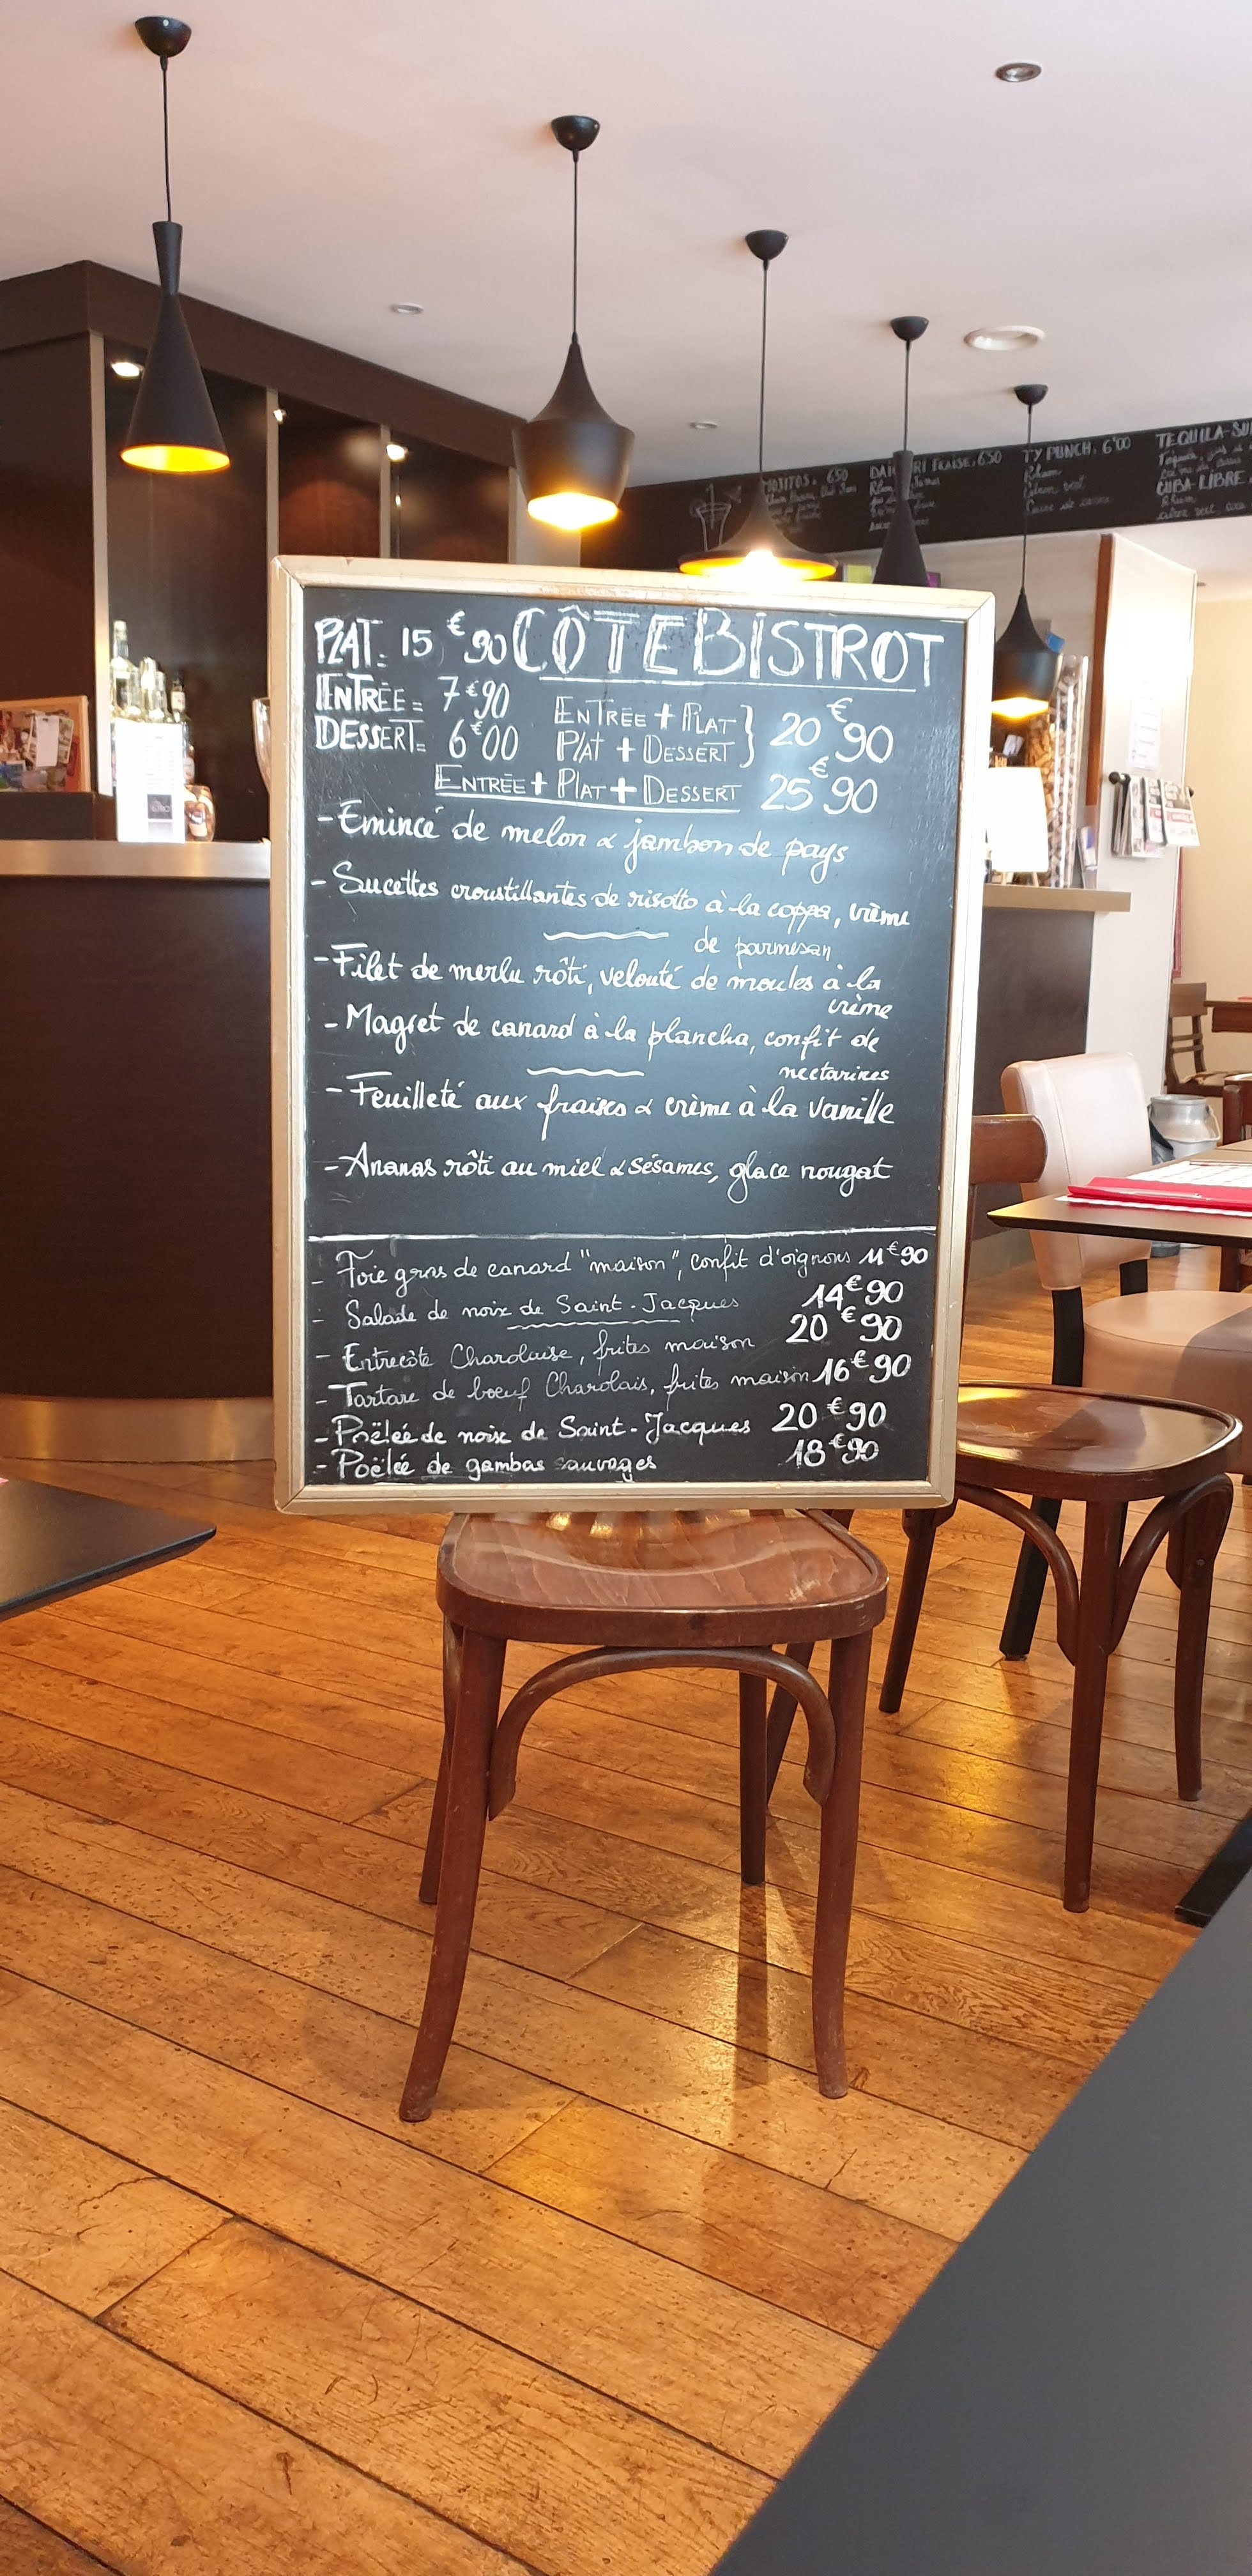 MOJITOS. 6'50
DAIQUIRI FRAISE. 6'50
TY PUNCH. 6'00
Rhum
Citron vert
Canne de sucre
TEQUILA-SU
CUBA LIBRE
Rhum
citron vert, coca
PLAT: 15,€90 CÔTE BISTROT
ENTRÉE = 7€90
DESSERT= 6€00
ENTRÉE + PLAT } 20€90
PLAT + DESSERT
ENTRÉE + PLAT + DESSERT 25€90
- Emincé de melon & jambon de pays
- Sucettes croustillantes de risotto à la coppa, crème
de parmesan
- Filet de merlu rôti, velouté de moules à la
crème
- Magret de canard à la plancha, confit de
nectarines
- Feuilleté aux fraises & crème à la vanille
- Ananas rôti au miel & sésames, glace nougat
- Foie gras de canard "maison", confit d'oignons 11€90
- Salade de noix de Saint-Jacques 14€90
- Entrecôte Charolaise, frites maison 20€90
- Tartare de boeuf Charolais, frites maison 16€90
- Poëlée de noix de Saint-Jacques 20€90
- Poëlée de gambas sauvages 18€90